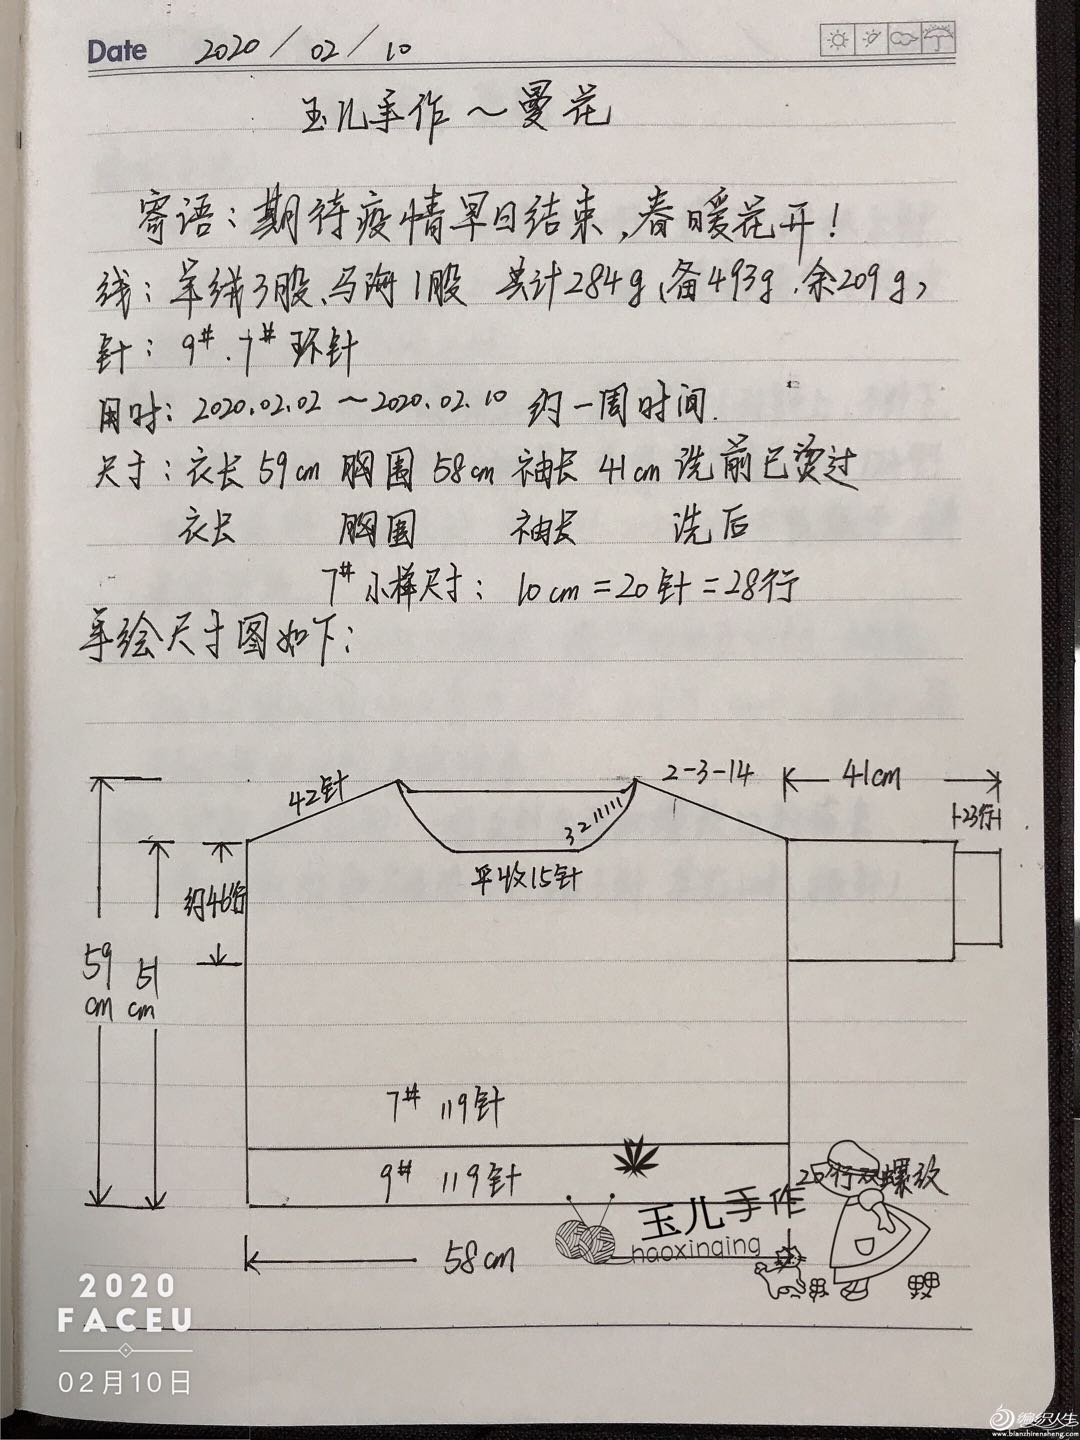 Date 2020/02/10
玉儿手作～曼花
寄语：期待疫情早日结束，春暖花开！
线：羊绒3股、马海1股 共计284g、备493g.余209g,
针：9#.7#环针
用时：2020.02.02～2020.02.10 约一周时间.
尺寸：衣长59cm 胸围58cm 袖长41cm 洗前已烫过
衣长 胸围 袖长 洗后
7#小样尺寸：10cm=20针=28行
手绘尺寸图如下：
42针
2-3-14
41cm
23行
3 2 1 1 1 1 1 1
平收15针
约46行
59cm
51cm
7# 119针
9# 119针
20行双螺纹
58cm
玉儿手作
haoxinqing
2020
FACEU
02月10日
编织人生
www.bianzhirensheng.com